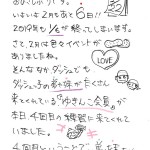 いよいよ2月もあと6日!!
2019年も1/6が終ってしまいます。
さて、2月は色々イベントが
ありましたね。
LOVE
そんななかダッシュでも
ダッシュ子の姉妹がたくさん
来てくれている「ゆきんこ会員」が
本日、4回目の検習に来てくれて
いました。
4回目というコトで